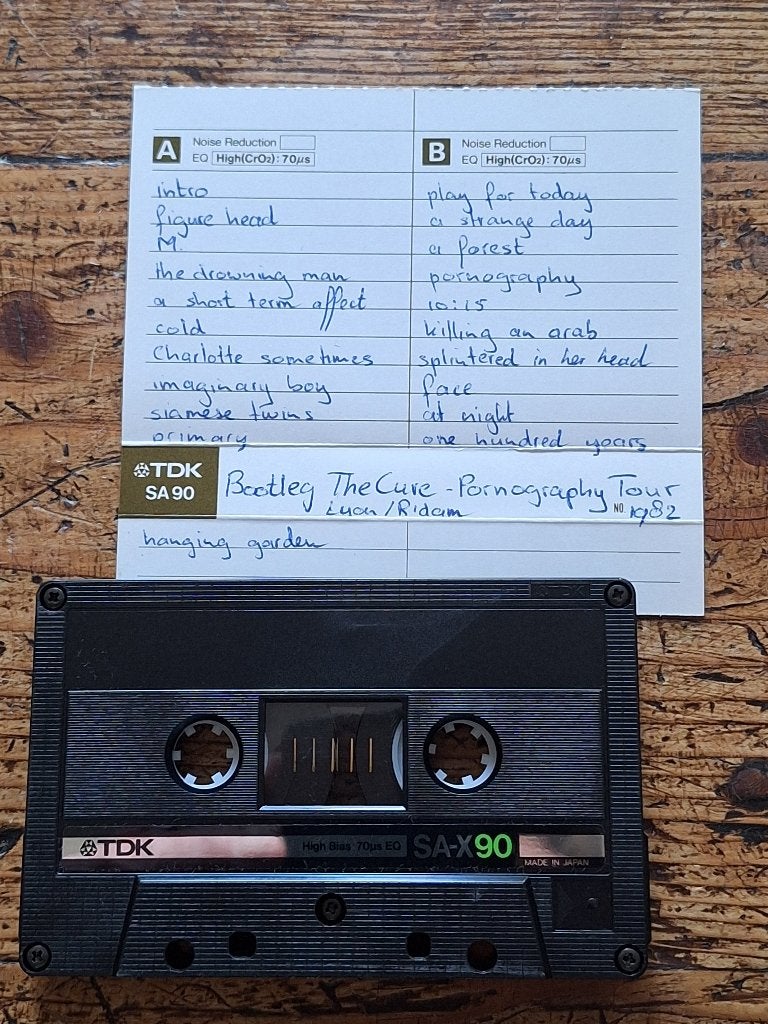 A Noise Reduction
EQ High(CrO2): 70µs
intro
figure head
M.
the drowning man
a short term affect
cold
Charlotte sometimes
imaginary boy
siamese twins
primary
B Noise Reduction
EQ High(CrO2): 70µs
play for today
a strange day
a forest
pornography
10:15
killing an arab
splintered in her head
face
at night
one hundred years
TDK
SA 90
Bootleg The Cure - Pornography Tour
Luan/Ridam
NO. 1982
hanging garden
TDK
TDK
High Bias 70µs EQ
SA-X90
MADE IN JAPAN